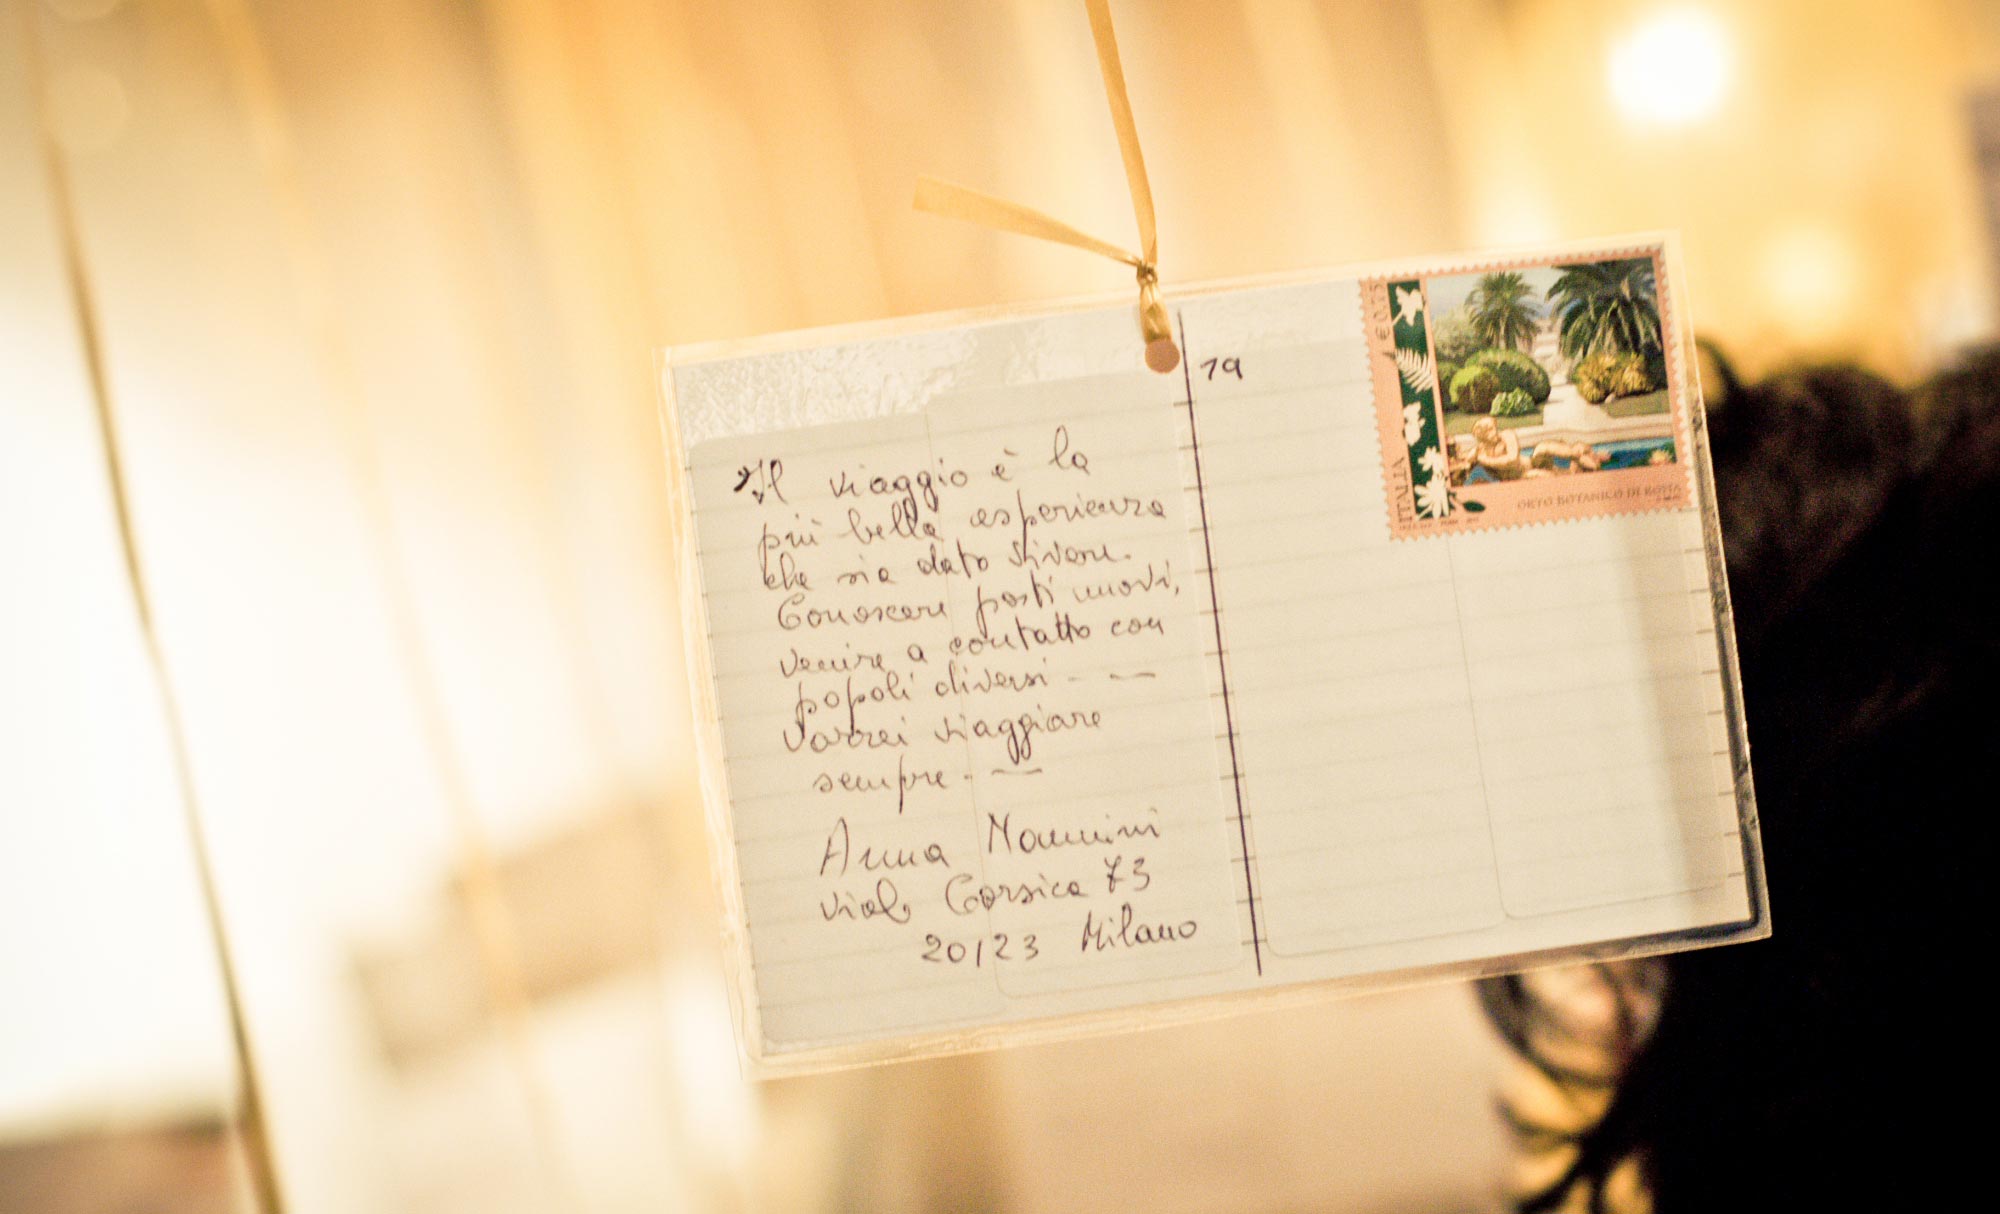 Il viaggio è la
più bella esperienza
che sia dato vivere.
Conoscere posti nuovi,
venire a contatto con
popoli diversi - —
Vorrei viaggiare
sempre - —
Anna
Viale Corsica 73
20123 Milano
19
€ 0,75
ITALIA
ORTO BOTANICO DI ROMA